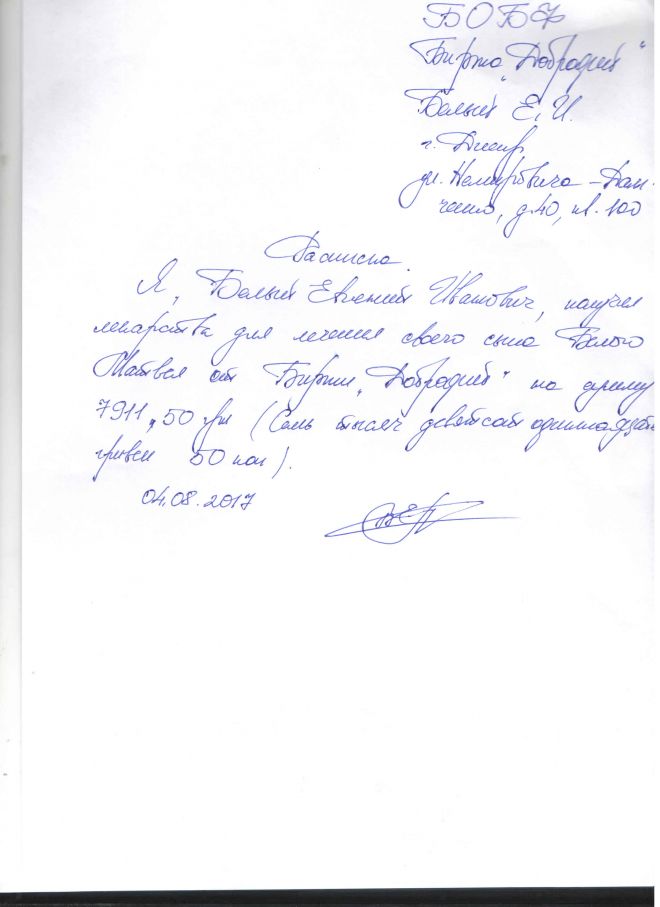 БОБФ
Биржа "Добродий"
Белый Е.И.
г. Днепр
ул. Немировича-Дан-
ченко, д.40, кв. 100
Расписка.
Я, Белый Евгений Иванович, получил
лекарства для лечения своего сына Белого
Матвея от Биржи "Добродий" на сумму
7911,50 грн (Семь тысяч девятсот одиннадцать
гривен 50 коп).
04.08.2017